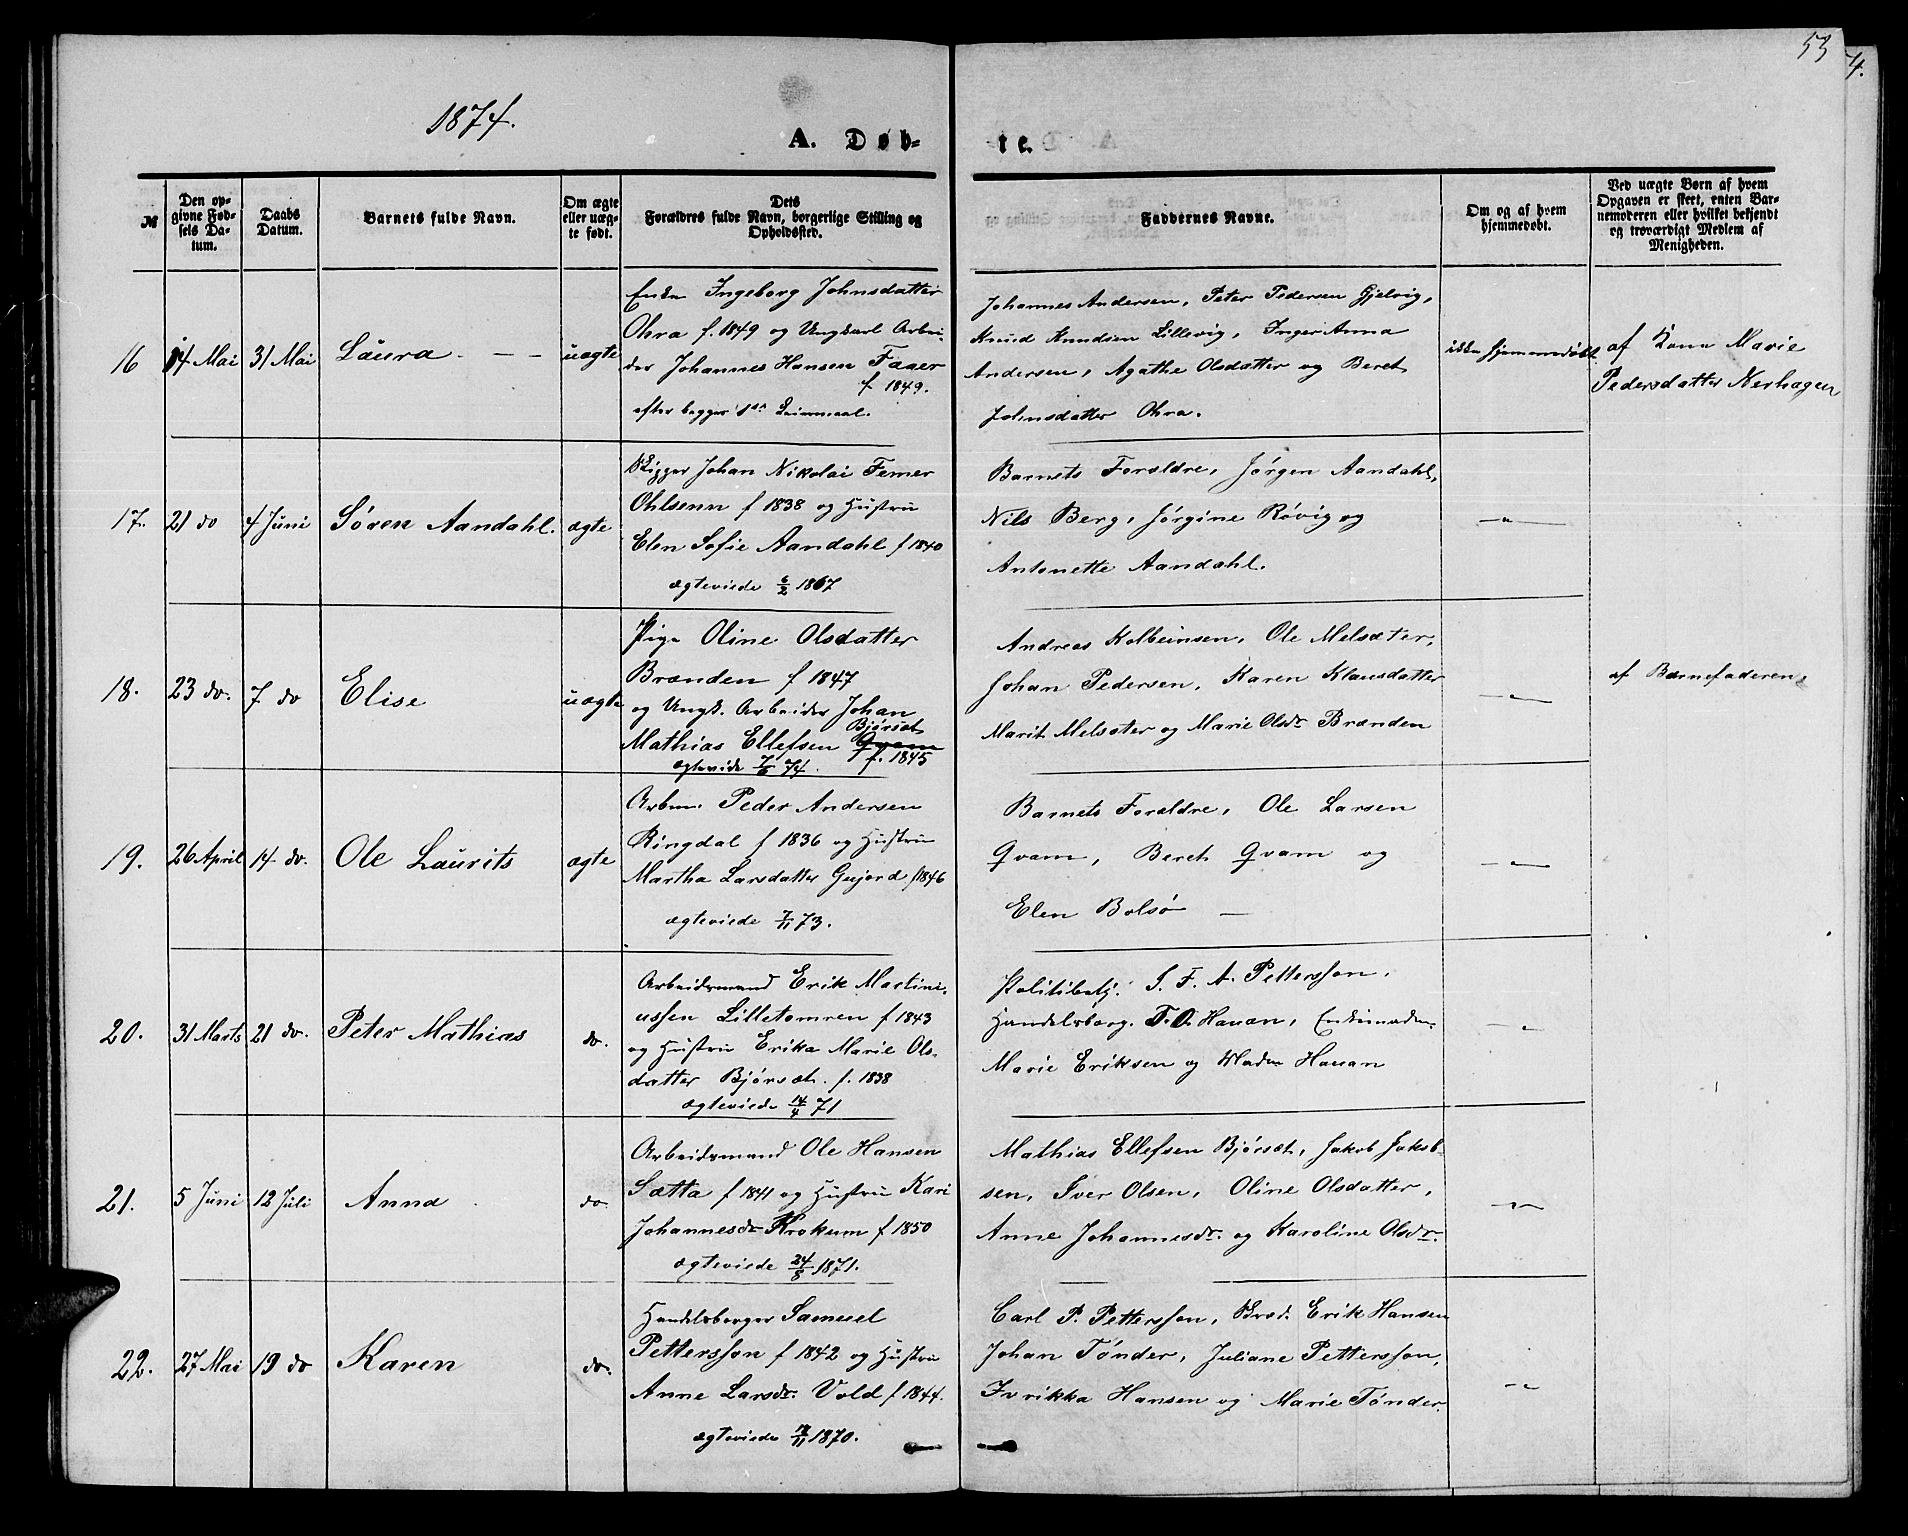 53
4.
1874.
A. Døb-
te.
№
Den op-
givne Fød-
sels Da-
tum.
Daabs
Datum.
Barnets fulde Navn.
Om ægte
eller uæg-
te født.
Dets
Forældres fulde Navn, borgerlige Stilling og
Opholdssted.
Faddernes Navne.
Om og af hvem
hjemmedøbt.
Ved uægte Børn af hvem
Opgaven er skeet, enten Bar-
nemoderen eller hvilket bekjendt
og troværdigt Medlem af
Menigheden.
16 14 Mai 31 Mai Laura uægte
Enke Ingeborg Johnsdatter
Ohra f. 1849 og Ungkarl Arbei-
der Johannes Hansen Faaer
f 1849.
efter begges 1ste Leiermaal.
Johannes Andersen, Peter Pedersen Gjelvig,
Knud Knudsen Lillevig, Inger Anna
Andersen, Agathe Olsdatter og Beret
Johnsdatter Ohra.
ikke hjemmedøbt
af Kone Marie
Pedersdatter Nerhagen
17. 21 do 4 Juni Søren Aandahl. ægte
Skipper Johan Nikolai Femer
Ohlsenn f 1838 og Hustru
Elen Sofie Aandahl f 1840
ægteviede 6/2 1867
Barnets Forældre, Jørgen Aandahl,
Nils Berg, Jørgine Røvig og
Antonette Aandahl.
—"—
18. 23 do. 7 do Elise uægte
Pige Oline Olsdatter
Brænden f 1847
og Ungk. Arbeider Johan
Bjørset
Mathias Ellefsen Qvam
f. 1845
ægtevide 7/6 74.
Andreas Kolbeinsen, Ole Melsæter,
Johan Pedersen, Karen Klausdatter
Marit Melsæter og Marie Olsdr Brænden
—"—
af Barnefaderen.
19. 26 April 14 do. Ole Laurits ægte
Arbm. Peder Andersen
Ringdal f 1836 og Hustru
Martha Larsdatter Gujord f 1846
ægteviede 7/11 73.
Barnets Forældre, Ole Larsen
Qvam, Beret Qvam og
Elen Bolsø —
—"—
20. 31 Marts 21 do. Peter Mathias do.
Arbeidsmand Erik Martini-
ussen Lilletomren f 1843
og Hustru Erika Marie Ols-
datter Bjørsæt. f. 1838
ægteviede 14/4 71
Politibetj. S. F. A. Pettersson,
Handelsborg. T. O. Hauan, Enkemadm.
Marie Eriksen og Madm Hauan
—"—
21. 5 Juni 12 Juli Anna do.
Arbeidsmand Ole Hansen
Sætta f 1841 og Hustru Kari
Johannesdr Krokum f 1850
ægteviede 24/8 1871.
Mathias Ellefsen Bjørsæt, Jakob Jakob-
sen, Iver Olsen, Oline Olsdatter,
Anne Johannesdr. og Karoline Olsdr.
—"—
22. 27 Mai 19 do Karen do.
Handelsborger Samuel
Pettersson f 1842 og Hustru
Anne Larsdr. Vold f 1844.
ægteviede 11 1870.
Carl P. Pettersson, Erik Hansen
Johan Tønder, Juliane Pettersson,
Fvrikka Hansen og Marie Tønder.
—"—